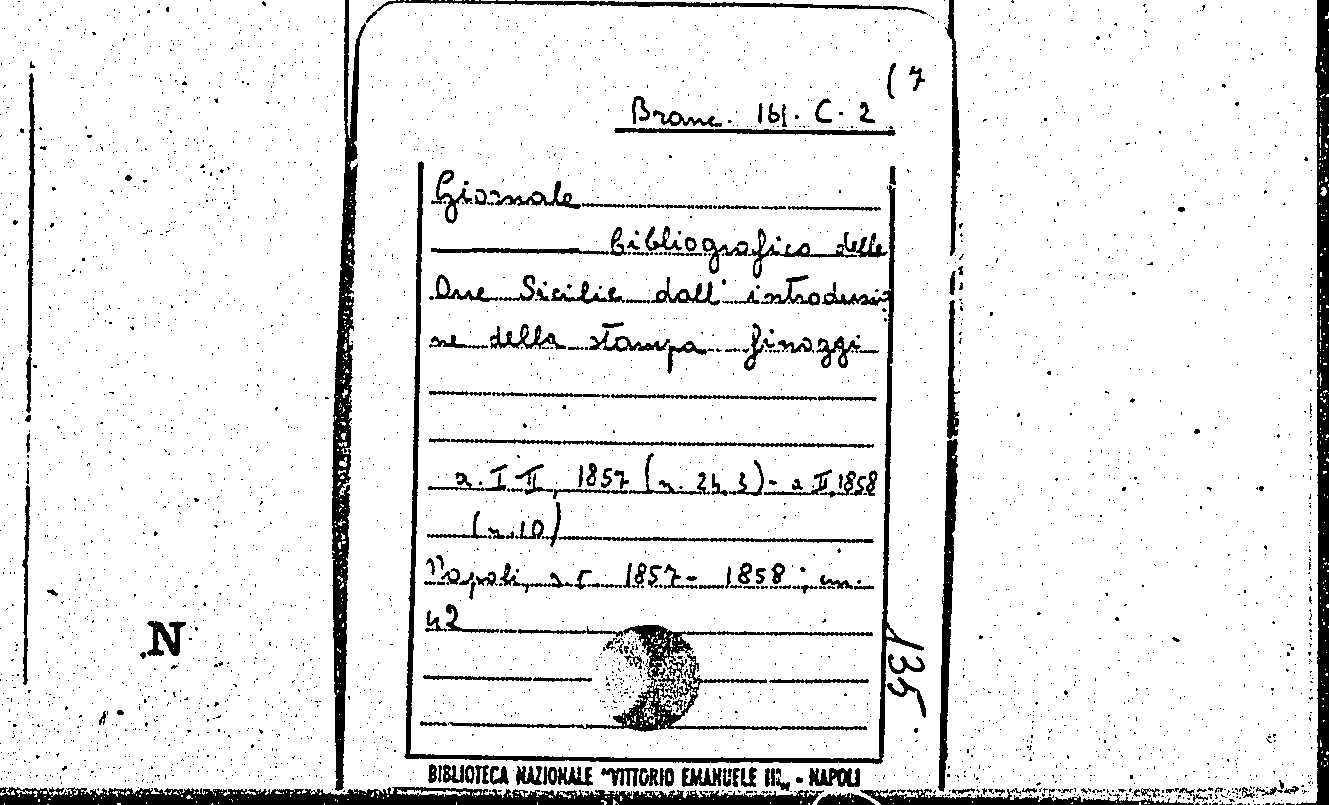 ( 7
Branc. 161. C. 2
Giornale
bibliografico delle
Due Sicilie dall' introduzio
ne della stampa finoggi
a. I-II, 1857 (n. 2h, 3) - a II, 1858
(n. 10)
Napoli, s.t. 1857 - 1858; cm.
42
135
N
BIBLIOTECA NAZIONALE "VITTORIO EMANUELE III" - NAPOLI